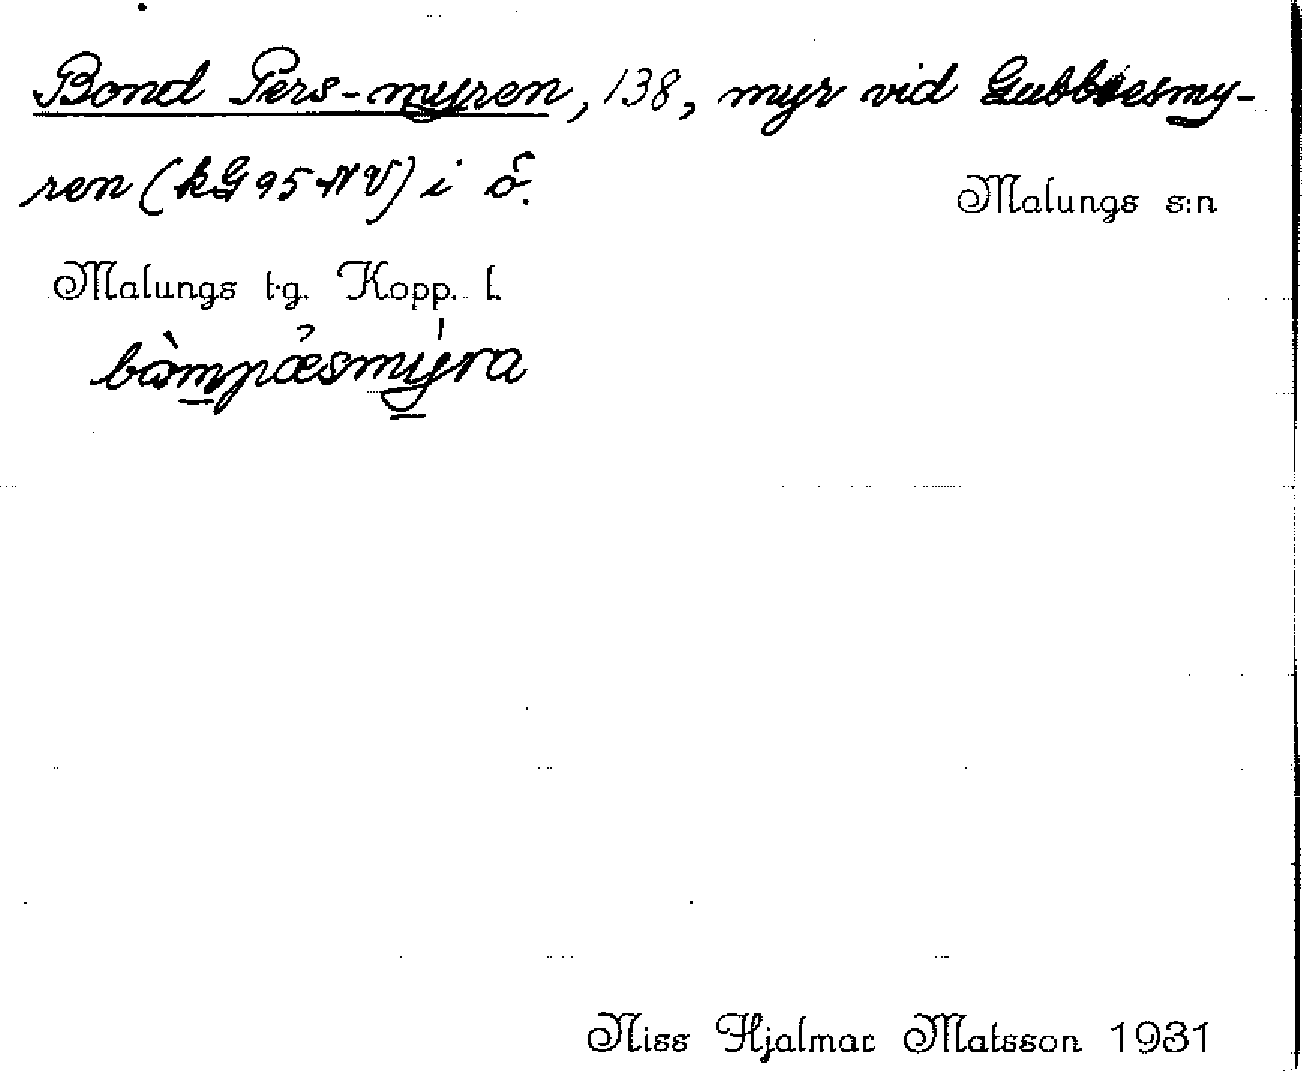 Bond Pers-myren, 138, myr vid Gubbesmy-
ren (kG95 NV) i ö.
Malungs s:n
Malungs t·g. Kopp. l.
bàmpæsmyra
Niss Hjalmar Matsson 1931